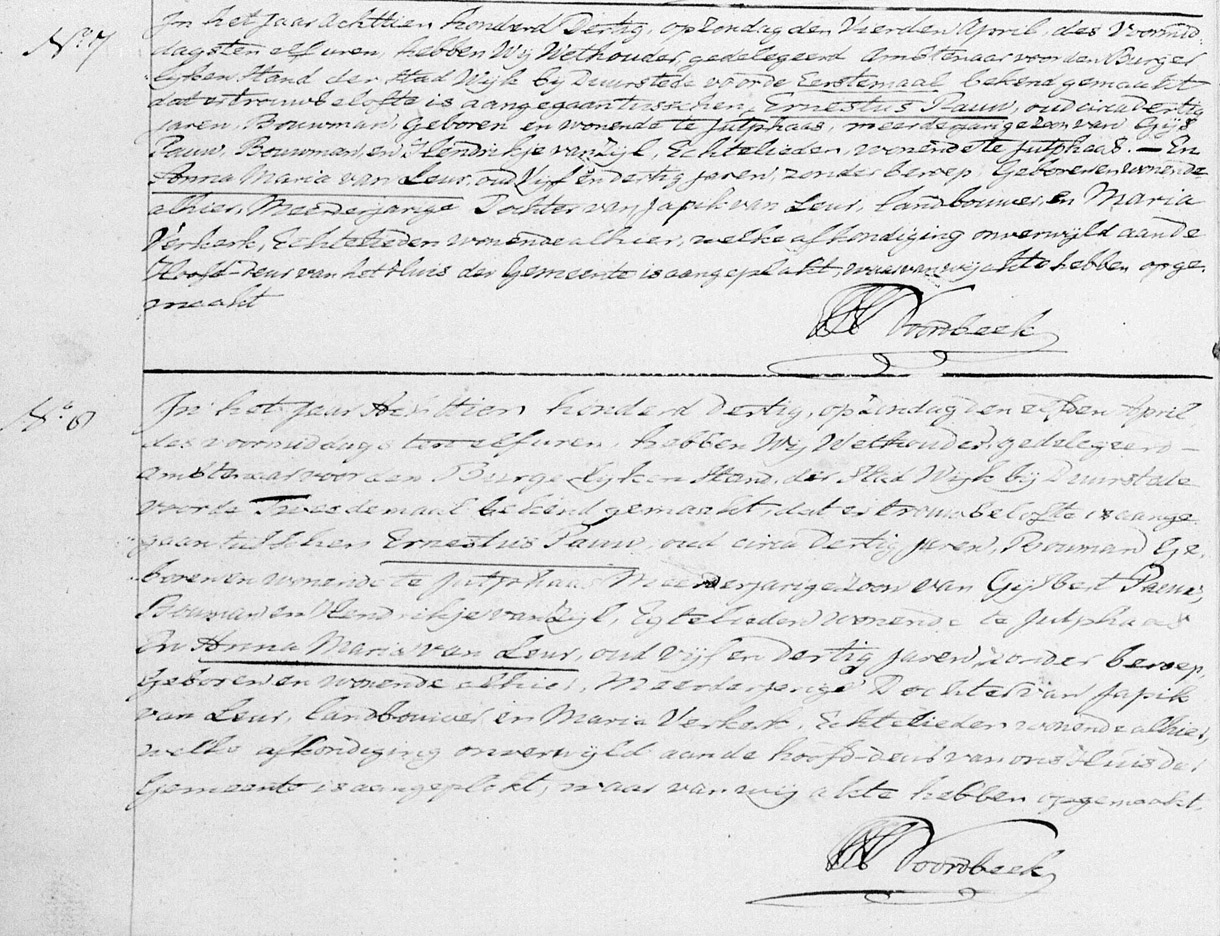 N.o 7
In het Jaar Achttien honderd Dertig, op Zondag den Vierden April, des Voormid=
dags ten elf uren, hebben Wij Wethouder, gedelegeerd Amstenaar voor den Burger
lyken Stand der Stad Wijk bij Duurstede voor de Eerstemaal bekend gemaakt
dat er trouwbelofte is aangegaan tusschen, Ernestus Pauw, oud circa dertig
jaren, Bouwman, geboren en wonende te Jutphaas, meerderjarige zoon van Gijsb
Pauw, Bouwman, en Hendrikje van Zijl, Echtelieden, wonende te Jutphaas. — En
Anna Maria van Leur, oud Vijf en dertig jaren, zonder beroep, Geboren en wonende
alhier, Meerderjarige Dochter van Japik van Leur, landbouwer, en Maria
Verkerk, Echtelieden wonende alhier, welke afkondiging onverwijld aan de
Hoofd-deur van het Huis der Gemeente is aangeplakt waar van wij akte hebben opge
maakt
Voordbeek
N.o 8
In het Jaar Achttien honderd Dertig, op Zondag den elfden April
des voormiddags ten elf uren, hebben Wij Wethouder, gedelegeerd —
amstenaar voor den Burgerlyken Stand, der Stad Wijk bij Duurstede
voor de Tweedemaal bekend gemaakt, dat er trouwbelofte is aange
gaan tusschen Ernestus Pauw, oud circa Dertig jaren, Bouman Ge,
boren en wonende te Jutphaas Meerderjarige Zoon van Gijsbert Pauw,
Bouman en Hendrikje van Zijl, Egtelieden wonende te Jutphaas
En Anna Maria van Leur, oud vijf en Dertig jaren, zonder beroep,
Geboren en wonende alhier, Meerderjerige Dochter van Japik
van Leur, landbouwer, en Maria Verkerk, Echtelieden wonende alhier,
welke afkondiging onverwijld aan de hoofd-deur van ons Huis der
Gemeente is aangeplakt, waar van wij akte hebben opgemaakt.
Voordbeek